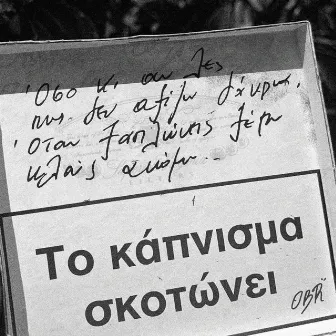 Όσο κι αν λες
πως δεν αξίζω δάκρυα,
Όταν ξαπλώνεις ξέρω
κλαις ακόμα...
Το κάπνισμα
σκοτώνει